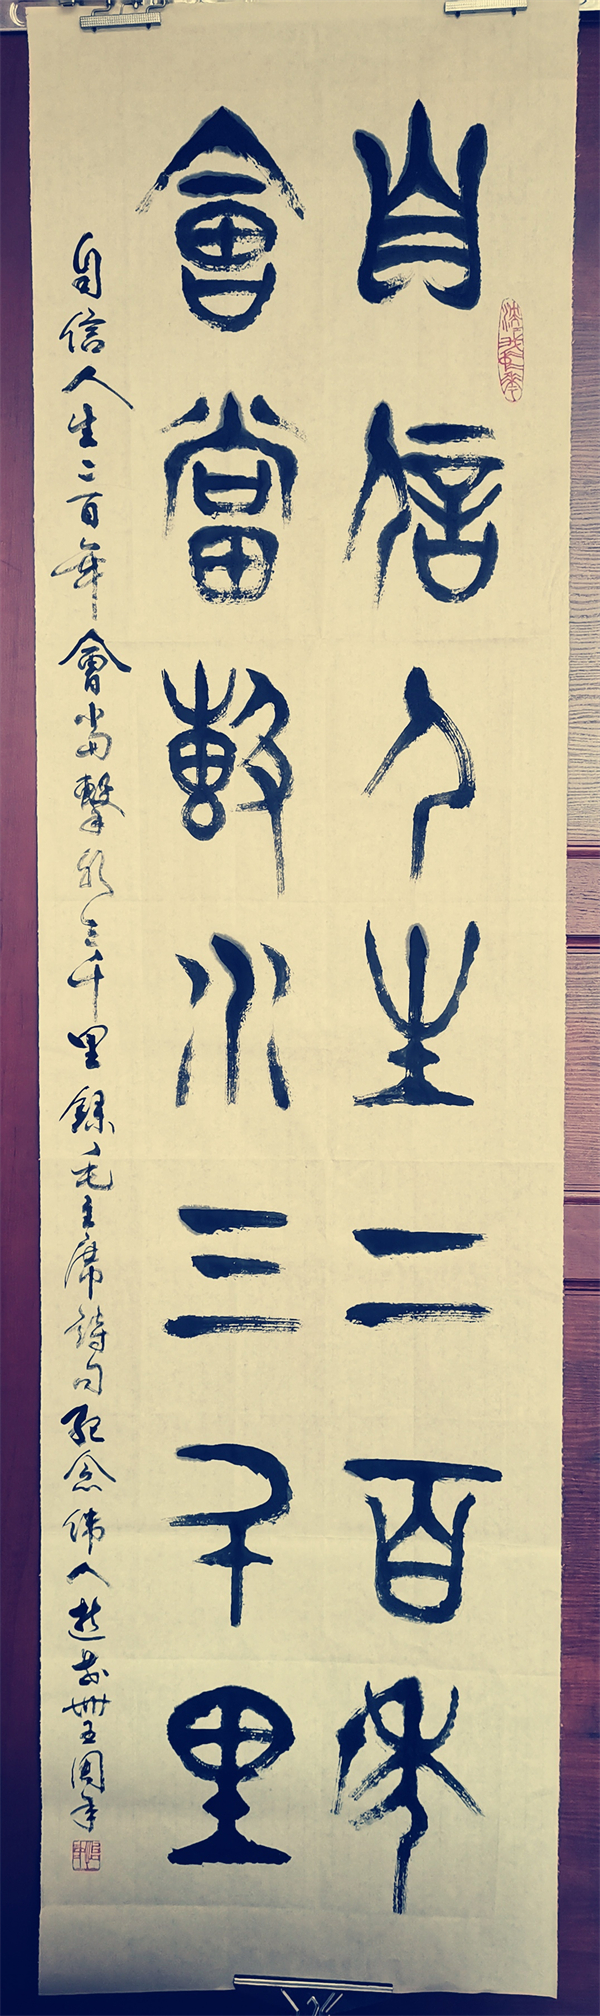 自信人生二百年
會當擊水三千里
自信人生二百年會當擊水三千里錄毛主席詩句紀念偉人逝世卌五周年